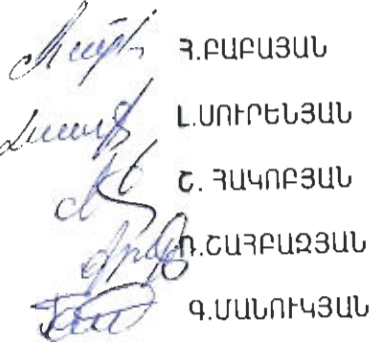 Հ.ԲԱԲԱՅԱՆ
Լ.ՍՈՒՐԵՆՅԱՆ
Շ. ՀԱԿՈԲՅԱՆ
Ռ.ՇԱՀԲԱԶՅԱՆ
Գ.ՄԱՆՈՒԿՅԱՆ